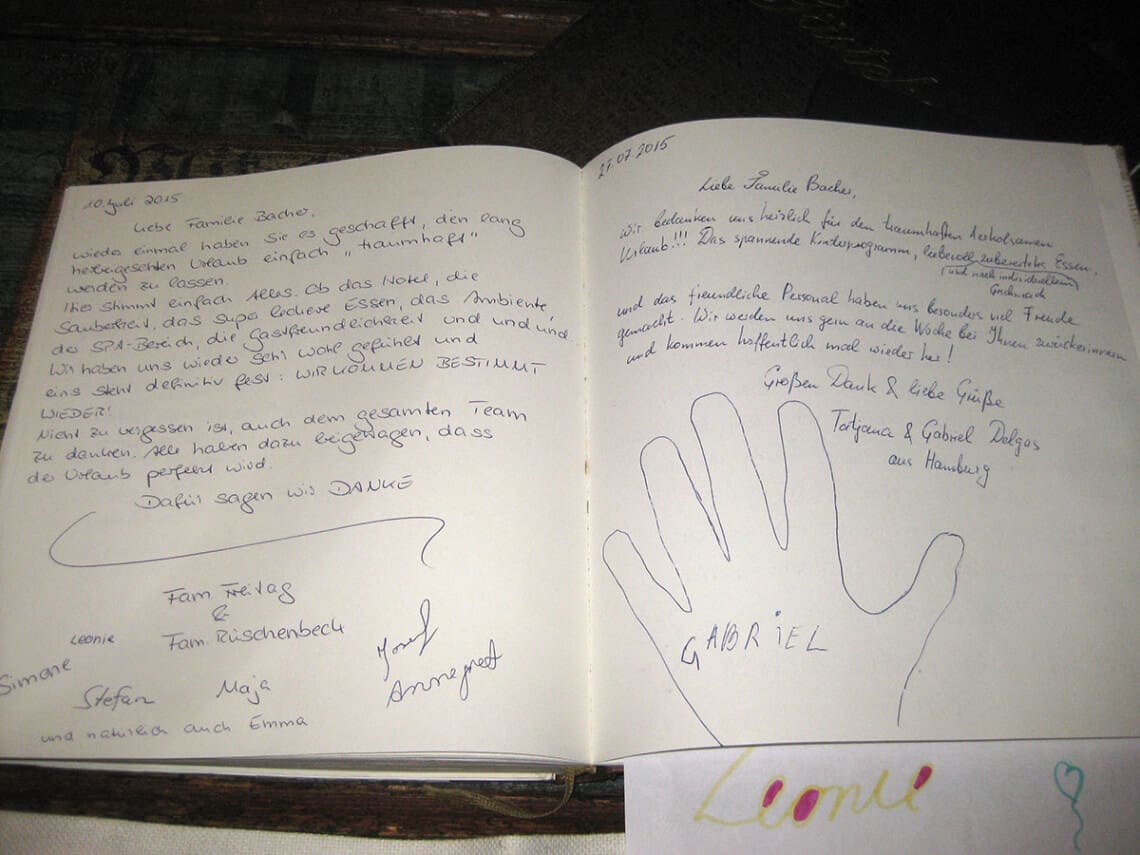 10. Juli 2015
Liebe Familie Bacher,
wieder einmal haben Sie es geschafft, den lang
herbeigesehnten Urlaub einfach „traumhaft“
werden zu lassen.
Hier stimmt einfach Alles. Ob das Hotel, die
Sauberkeit, das super leckere Essen, das Ambiente,
der SPA-Bereich, die Gastfreundlichkeit und und und
Wir haben uns wieder sehr wohl gefühlt und
eins steht definitiv fest: WIR KOMMEN BESTIMMT
WIEDER!
Nicht zu vergessen ist, auch dem gesamten Team
zu danken. Alle haben dazu beigetragen, dass
der Urlaub perfekt wird.
Dafür sagen wir DANKE
Fam. Freitag
&
Fam. Rüschenbeck
Leonie
Simone
Stefan
Maja
Josef
Annegret
und natürlich auch Emma
27.07.2015
Liebe Familie Bacher,
Wir bedanken uns herzlich für den traumhaften & erholsamen
Urlaub!!! Das spannende Kinderprogramm, liebevoll zubereitetes Essen,
(und nach individuellem
Geschmack)
und das freundliche Personal haben uns besonders viel Freude
gemacht. Wir werden uns gern an die Woche bei Ihnen zurückerinnern
und kommen hoffentlich mal wieder her!
Großen Dank & liebe Grüße
Tatjana & Gabriel Delgas
aus Hamburg
GABRIEL
Leonie